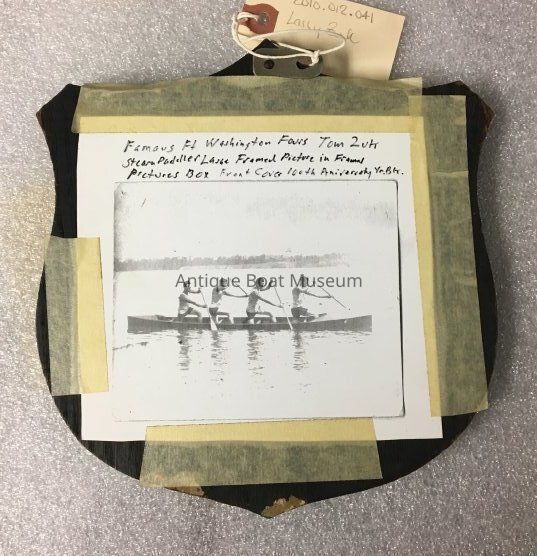 2010.012.041
Larry Zuk
Famous Ft Washington Fours Tom Zuk
Stearn Paddler Large Framed Picture in Framed
Pictures Box Front Cover 100th Aniversaty Yr. Bk.
Antique Boat Museum